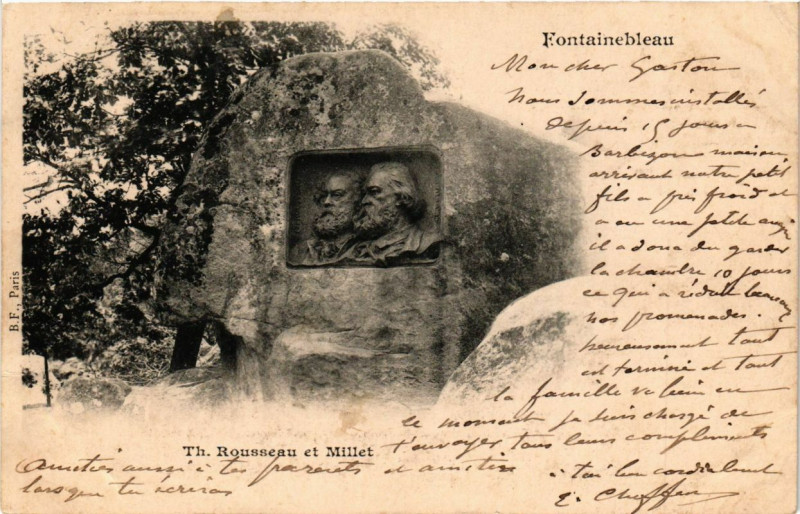 Fontainebleau
Mon cher Gaston
Nous sommes installés
depuis 15 jours a
Barbizon mais en
arrivant notre petit
fils a pris froid et
a eu une petite angine
il a donc du garder
la chambre 10 jours
ce qui a réduit beaucoup
nos promenades.
heureusement tout
est terminé et tout
la famille va bien en
ce moment je suis chargé de
t'envoyer tous leurs compliments
à toi bien cordialement
E.
Th. Rousseau et Millet
Amitiés aussi à tes parents et amitiés
lorsque tu écriras
B.F., Paris